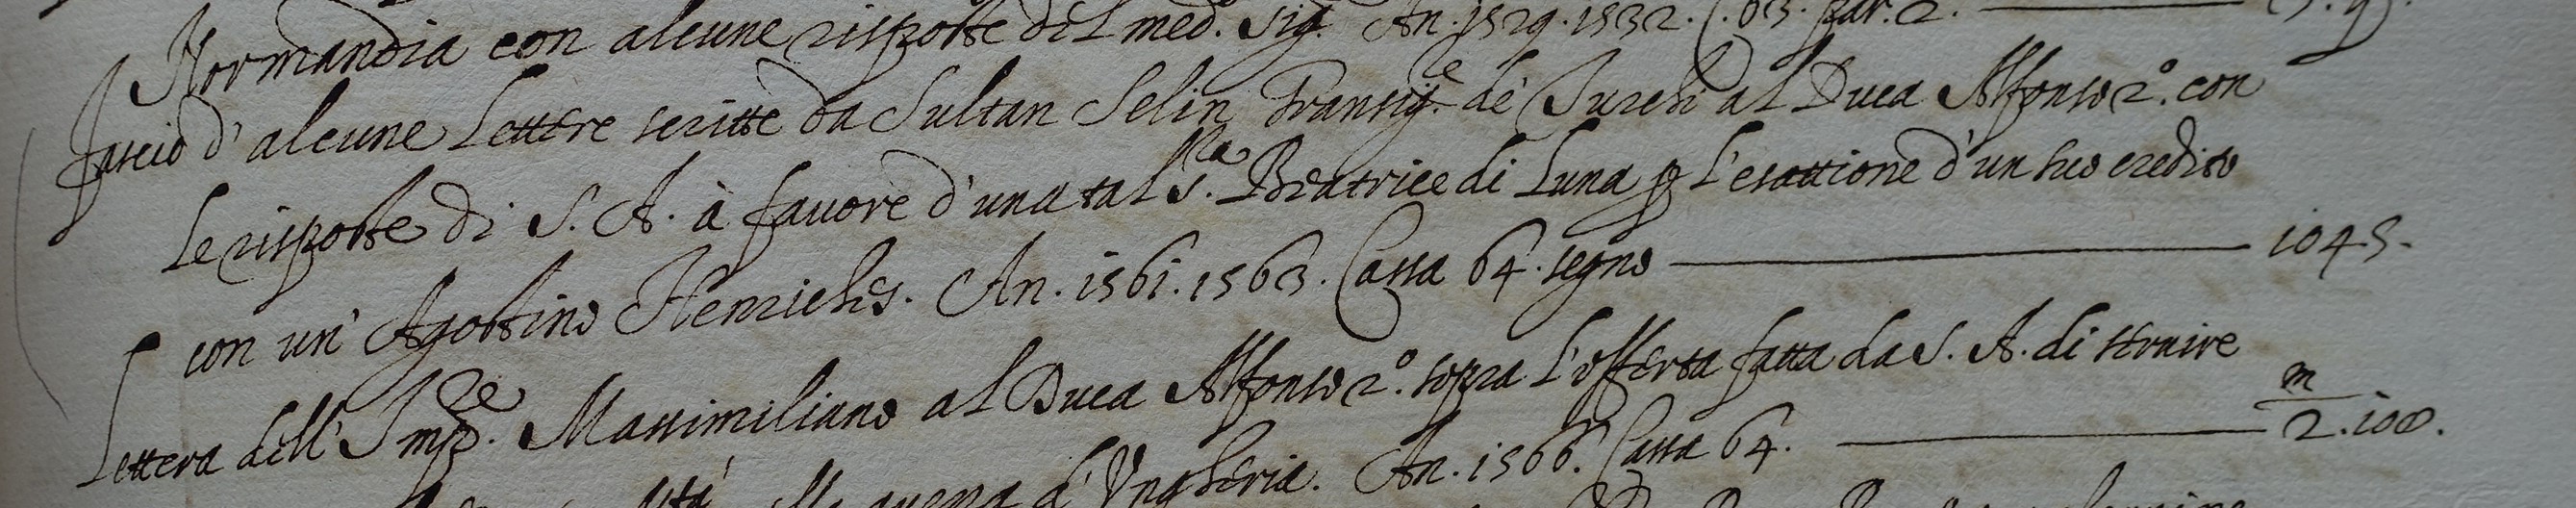 Normandia con alcune risposte del med.º Sig.re An. 1529. 1532. C. 63. par. 2.
Fascio d'alcune Lettere scritte da Sultan Selin Gran Sig.re de Turchi al Duca Alfonso 2º. con
le risposte di S. A. à fauore d'una tal S.ra Beatrice di Luna p l'esattione d'un suo credito
con un' Agostino Henriches. An. 1561. 1563. Cassa 64. segno 1045.
Lettera dell' Imp.re Massimiliano al Duca Alfonso 2º. sopra l'offerta fatta da S. A. di seruire
alla guerra d' Vngheria. An. 1566. Cassa 64. m/2.100.